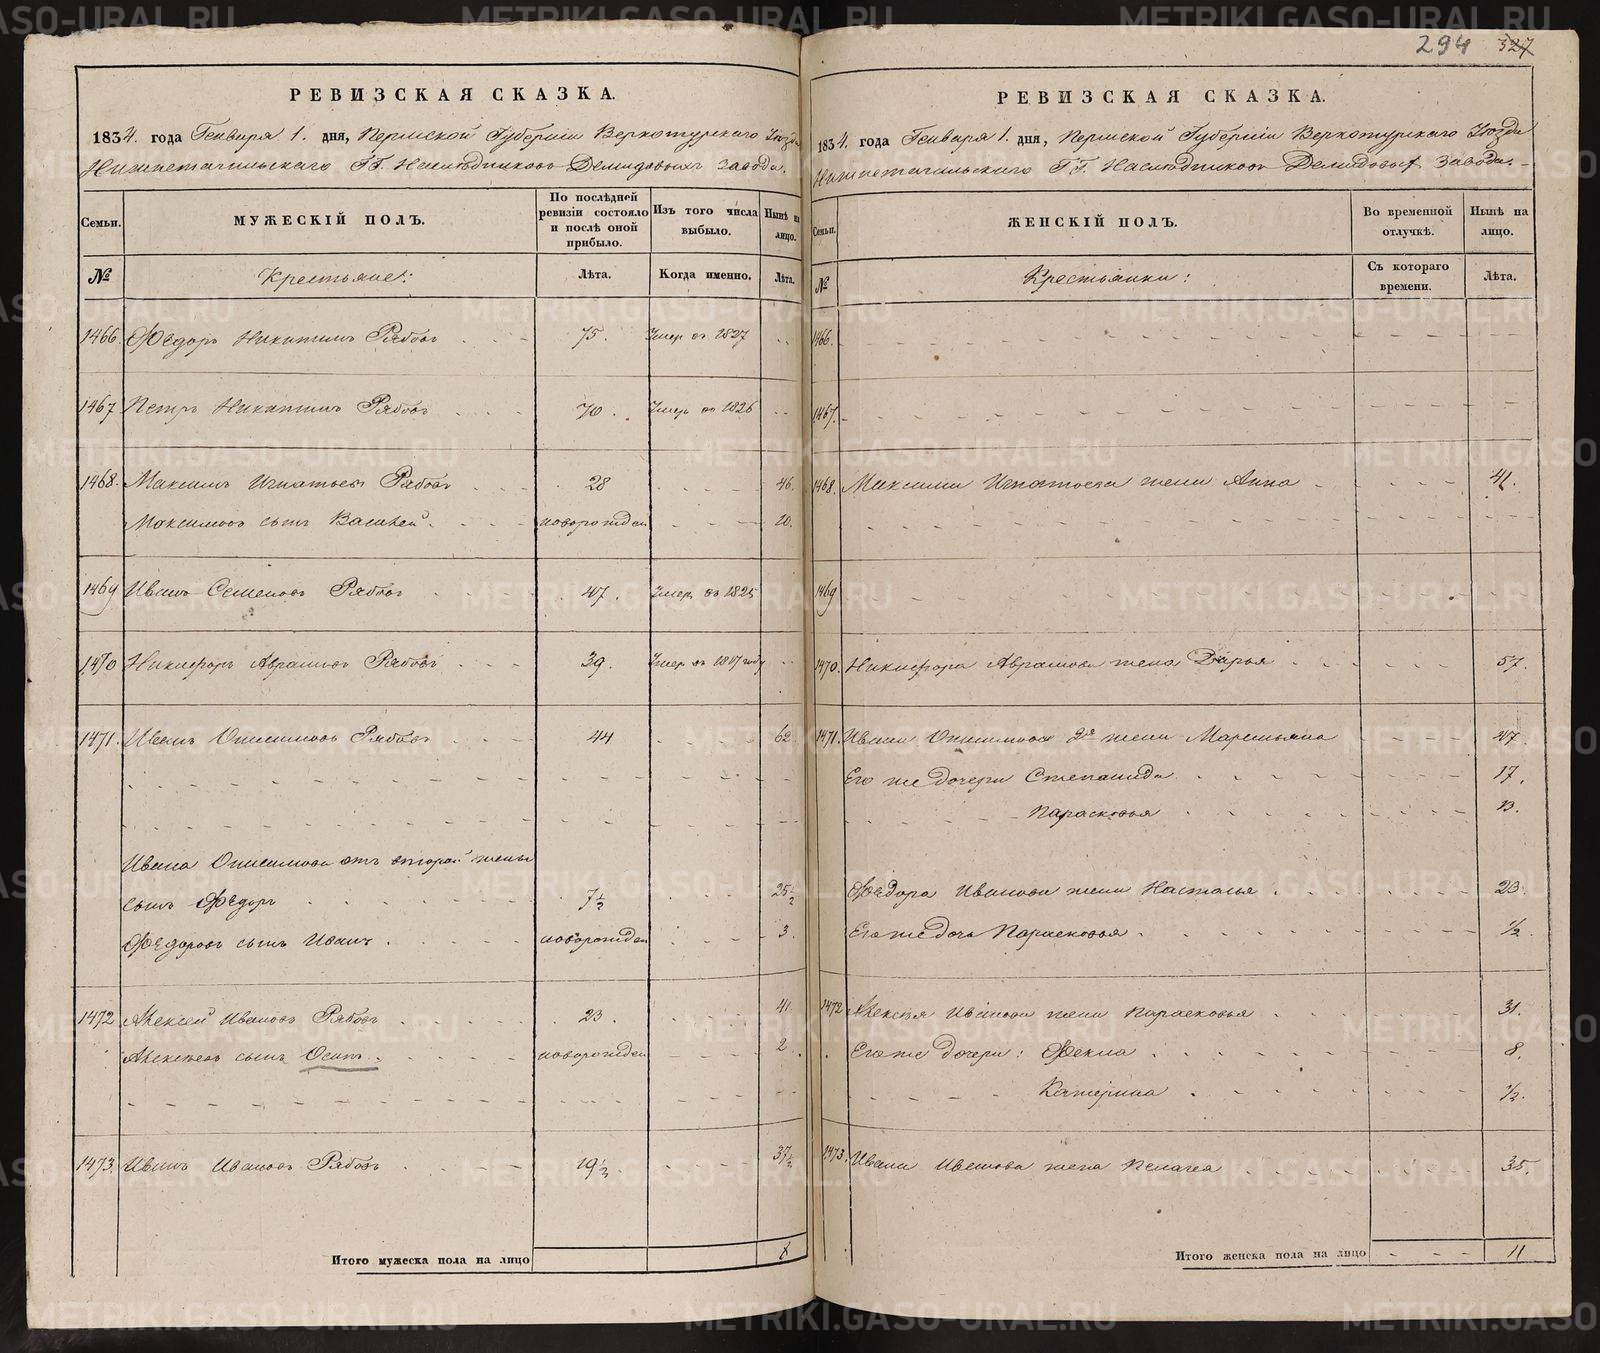 294 327
РЕВИЗСКАЯ СКАЗКА.
1834. года Генваря 1. дня, Пермской Губернiи Верхотурскаго Уѣзда
Нижнетагильскаго ГГ. Наслѣдниковъ Демидовыхъ завода.
Семьи. МУЖЕСКIЙ ПОЛЪ. По послѣдней ревизiи состояло и послѣ оной прибыло. Изъ того числа выбыло. Нынѣ на лицо.
№ Крестьяне: Лѣта. Когда именно. Лѣта.
1466. Ѳедоръ Никитинъ Рябовъ 75. Умер въ 1827
1467 Петръ Никитинъ Рябовъ 70. Умер въ 1826
1468. Максимъ Игнатьевъ Рябовъ 28 46.
Максимовъ сынъ Василей новорожден 20.
1469 Иванъ Семеновъ Рябовъ 47. Умер въ 1825
1470 Никифоръ Аврамовъ Рябовъ 39. Умер въ 1817 году
1471. Иванъ Онисимовъ Рябовъ 44 62.
Ивана Онисимова отъ второй жены
сынъ Ѳедоръ 7½ 25½
Ѳедоровъ сынъ Иванъ новорожден 3.
1472 Алексей Ивановъ Рябовъ 23. 41
Алексеевъ сынъ Осипъ новорожден 2.
1473. Иванъ Ивановъ Рябовъ 19½ 37½
Итого мужеска пола на лицо 8
РЕВИЗСКАЯ СКАЗКА.
1834. года Генваря 1. дня, Пермской Губернiи Верхотурскаго Уѣзда
Нижнетагильскаго ГГ. Наслѣдниковъ Демидовыхъ завода.
Семьи. ЖЕНСКIЙ ПОЛЪ. Во временной отлучкѣ. Нынѣ на лицо.
№ Крестьянки: Съ котораго времени. Лѣта.
1466.
1467.
1468. Максима Игнатьева жена Анна 41.
1469
1470. Никифора Аврамова жена Дарья 57.
1471. Ивана Онисимова 2я жена Маремьяна 47
Его же дочери Степанида 17.
Парасковья 13.
Ѳедора Иванова жена Настасья 23
Его же дочь Парасковья ½.
1472 Алексея Иванова жена Парасковья 31.
Его же дочери: Ѳекла 8.
Катерина ½.
1473. Ивана Иванова жена Пелагея 35.
Итого женска пола на лицо 11
METRIKI.GASO-URAL.RU